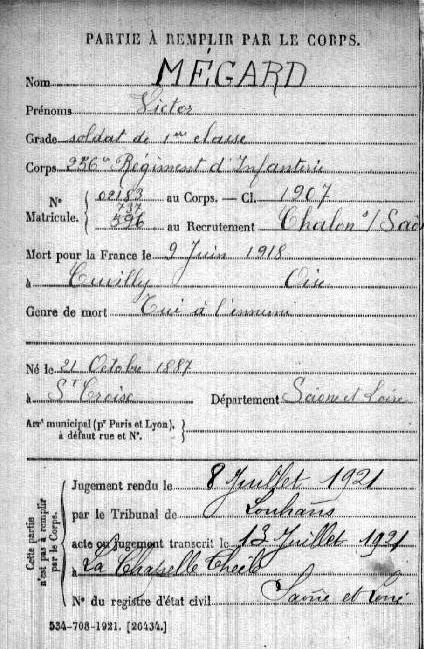 PARTIE À REMPLIR PAR LE CORPS.
Nom MÉGARD
Prénoms Victor
Grade soldat de 1ère classe
Corps 256e Régiment d'Infanterie
N° Matricule. { 02183 au Corps. — Cl. 1907
737
596 au Recrutement Chalon s/ Saône
Mort pour la France le 9 Juin 1918
à Cuvilly Oise
Genre de mort Tué à l'ennemi
Né le 21 Octobre 1887
à St Croix Département Saône et Loire
Arrt municipal (pr Paris et Lyon), à défaut rue et N°. }
Cette partie n'est pas à remplir par le Corps.
Jugement rendu le 8 Juillet 1921
par le Tribunal de Louhans
acte ou jugement transcrit le 13 Juillet 1921
à La Chapelle Thècle
N° du registre d'état civil Saône et Loire
534-708-1921. [26434.]